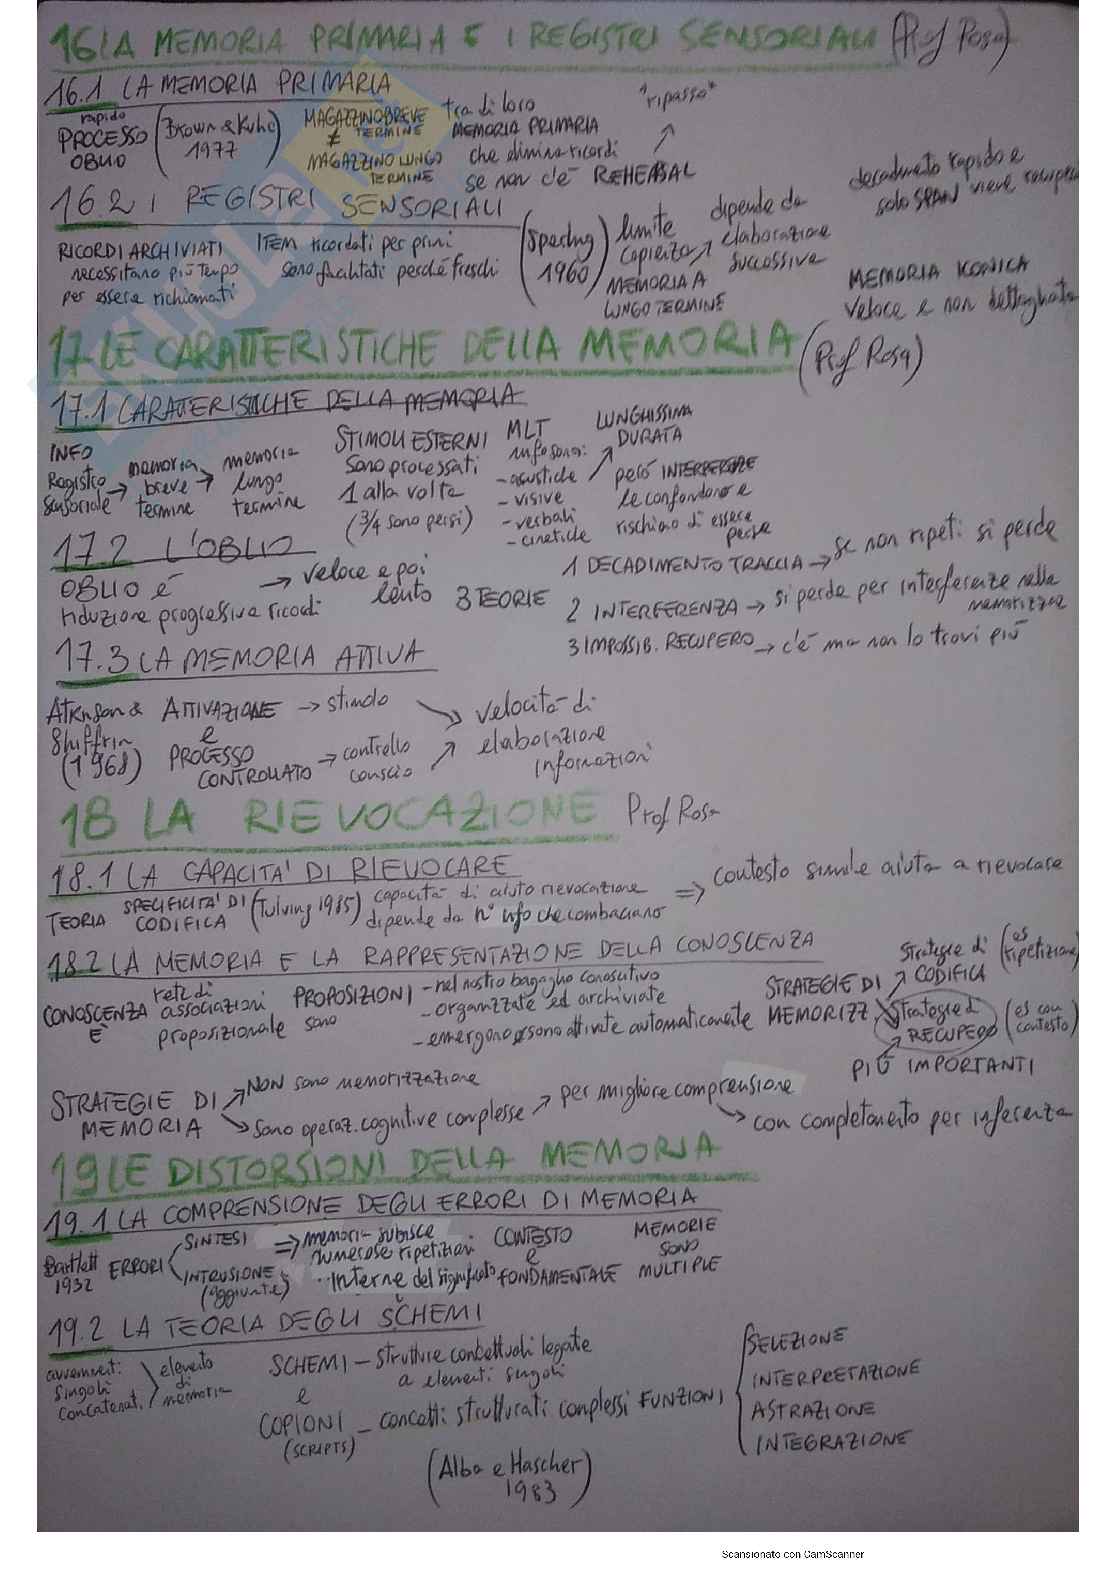 16 LA MEMORIA PRIMARIA E I REGISTRI SENSORIALI (Prof Rosa)
16.1 LA MEMORIA PRIMARIA
rapido
PROCESSO OBLIO
(Brown & Kuhc 1977)
MAGAZZINO BREVE TERMINE
≠
MAGAZZINO LUNGO TERMINE
tra di loro
MEMORIA PRIMARIA
che elimina ricordi
se non c'è REHERSAL
"ripasso"
16.2 I REGISTRI SENSORIALI
RICORDI ARCHIVIATI
necessitano più tempo
per essere richiamati
ITEM ricordati per primi
sono facilitati perché freschi
(Sperling 1960)
limite
capienza
MEMORIA A
LUNGO TERMINE
dipende da
elaborazione
successiva
decadimento rapido e
solo SPAN viene
MEMORIA ICONICA
veloce e non dettagliata
17 LE CARATTERISTICHE DELLA MEMORIA (Prof Rosa)
17.1 CARATTERISTICHE DELLA MEMORIA
INFO
Registro sensoriale → memoria breve termine → memoria lungo termine
STIMOLI ESTERNI
sono processati
1 alla volta
(3/4 sono persi)
MLT
info sono:
- acustiche
- visive
- verbali
- cinetiche
LUNGHISSIMA
DURATA
però INTERFERENZE
le confondono e
rischiano di essere
perse
17.2 L'OBLIO
OBLIO è
riduzione progressiva ricordi
→ veloce e poi
lento
3 TEORIE
1 DECADIMENTO TRACCIA → se non ripeti si perde
2 INTERFERENZA → si perde per interferenze nella
memorizzaz
3 IMPOSSIB. RECUPERO → c'è ma non lo trovi più
17.3 LA MEMORIA ATTIVA
Atkinson &
Shiffrin
(1968)
ATTIVAZIONE → stimolo
e
PROCESSO
CONTROLLATO → controllo
conscio
velocità di
elaborazione
informazioni
18 LA RIEVOCAZIONE Prof Rosa
18.1 LA CAPACITA' DI RIEVOCARE
TEORIA SPECIFICITA' DI CODIFICA (Tulving 1985)
capacità di aiuto rievocazione
dipende da n° info che combaciano
⇒ contesto simile aiuta a rievocare
18.2 LA MEMORIA E LA RAPPRESENTAZIONE DELLA CONOSCENZA
CONOSCENZA È
rete di
associazioni
proposizionale
PROPOSIZIONI
sono
- nel nostro bagaglio conoscitivo
- organizzate ed archiviate
- emergono e sono attivate automaticamente
STRATEGIE DI
MEMORIZZ
strategie di CODIFICA (es ripetizione)
strategie di RECUPERO (es con contesto)
PIÙ IMPORTANTI
STRATEGIE DI
MEMORIA
NON sono memorizzazione
sono operaz. cognitive complesse
per migliore comprensione
con completamento per inferenza
19 LE DISTORSIONI DELLA MEMORIA
19.1 LA COMPRENSIONE DEGLI ERRORI DI MEMORIA
Bartlett
1932
ERRORI
SINTESI
INTRUSIONE
(aggiunte)
⇒ memoria subisce
numerose ripetizioni
interne del significato
CONTESTO
è
FONDAMENTALE
MEMORIE
SONO
MULTIPLE
19.2 LA TEORIA DEGLI SCHEMI
avvenimenti:
singoli
concatenati
elemento
di
memoria
SCHEMI - strutture concettuali legate
a elementi singoli
e
COPIONI - concetti strutturati complessi
(SCRIPTS)
FUNZIONI
SELEZIONE
INTERPRETAZIONE
ASTRAZIONE
INTEGRAZIONE
(Alba e Hascher
1983)
Scansionato con CamScanner